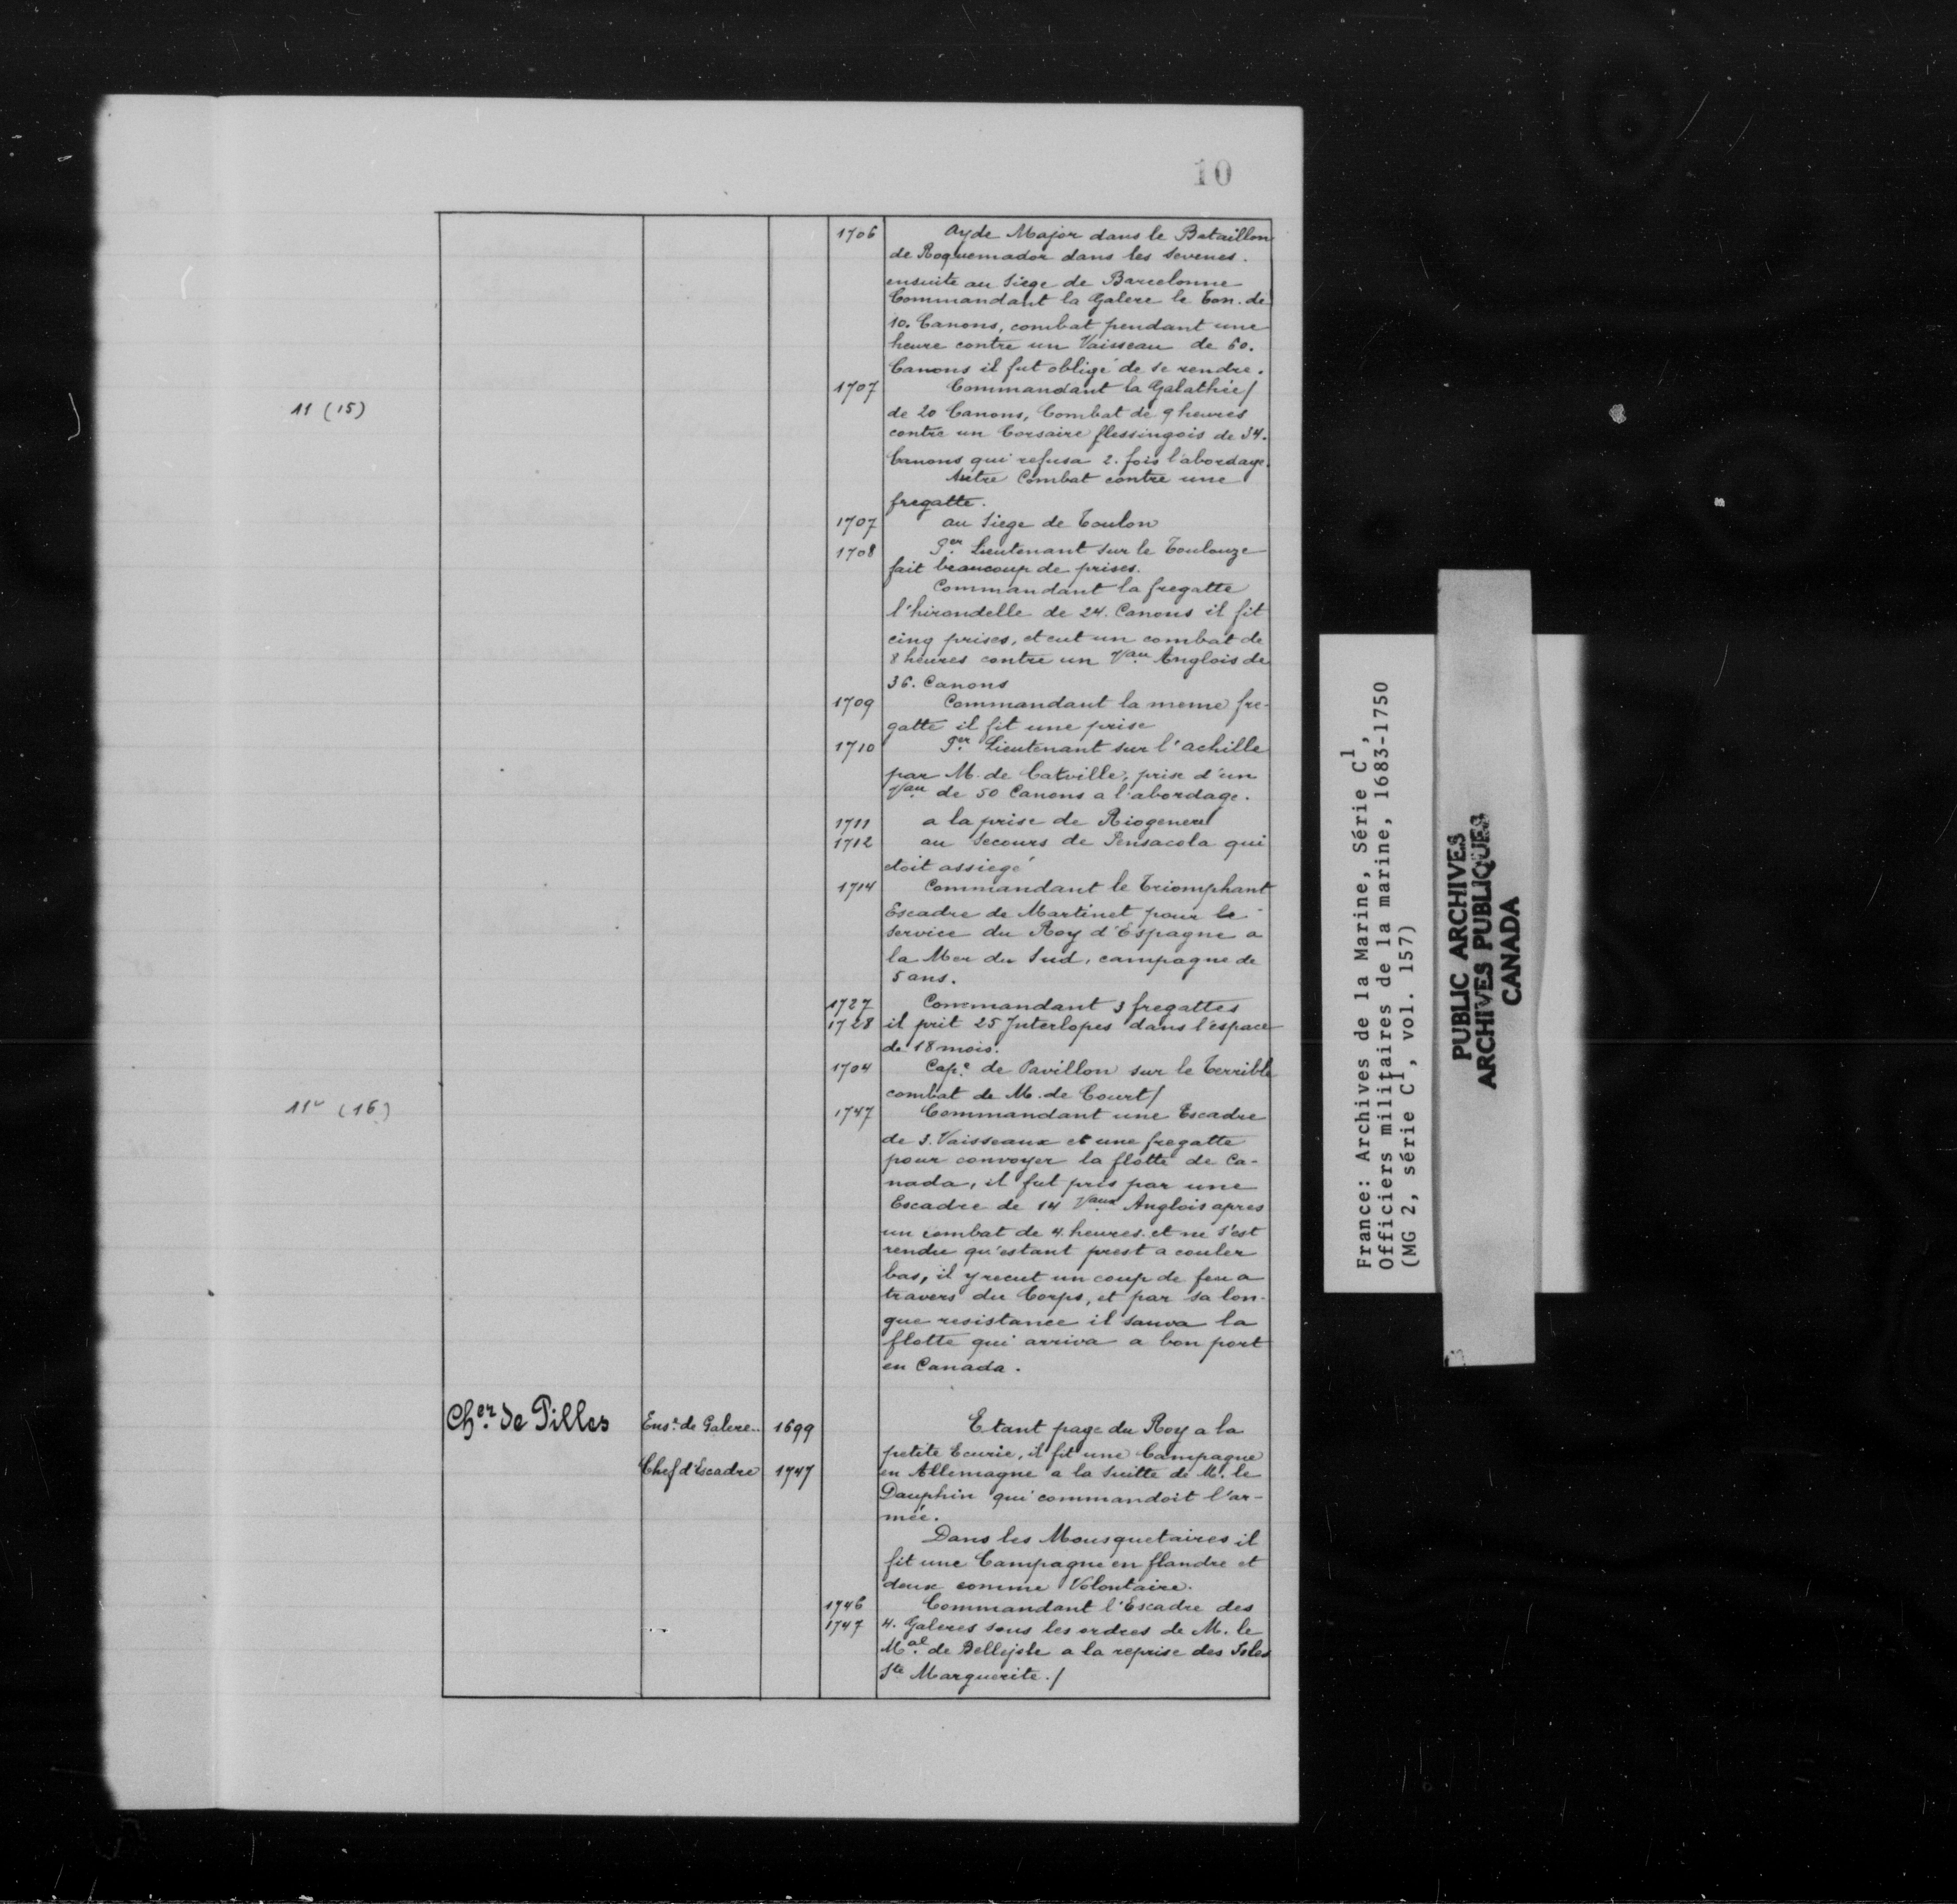 10
1706 Ayde Major dans le Bataillon
de Roquemador dans les Sevenes.
ensuite au Siege de Barcelonne
Commandant la Galere le Ton. de
10. Canons, combat pendant une
heure contre un Vaisseau de 60.
Canons il fut obligé de se rendre.
1707 Commandant la Galathée/
11 (15) de 20 Canons, Combat de 9 heures
contre un Corsaire flessingois de 34.
Canons qui refusa 2. fois l'abordage.
Autre Combat contre une
fregatte.
1707 au Siege de Toulon
1708 Per Lieutenant sur le Toulouze
fait beaucoup de prises.
Commandant la fregatte
l'hirondelle de 24. Canons il fit
cinq prises, et eut un combat de
8 heures contre un Vau Anglois de
36. Canons
1709 Commandant la meme fre-
gatte il fit une prise
1710 Per Lieutenant sur l'achille
par M. de Catville, prise d'un
Vau de 50 Canons a l'abordage.
1711 a la prise de Riogeneru
1712 au Secours de Pensacola qui
etoit assiegé
1714 Commandant le Triomphant
Escadre de Martinet pour le
service du Roy d'Espagne a
la Mer du Sud, campagne de
5 ans.
1727 Commandant 3 fregattes
1728 il prit 25 Interlopes dans l'espace
de 18 mois.
1704 Cape de Pavillon sur le Terrible
combat de M. de Court/
11v (16) 1747 Commandant une Escadre
de 3. Vaisseaux et une fregatte
pour convoyer la flotte de Ca-
nada, il fut pris par une
Escadre de 14 Vaux Anglois apres
un combat de 4. heures. et ne s'est
rendu qu'estant prest a couler
bas, il y recut un coup de feu a
travers du Corps, et par sa lon-
gue resistance il sauva la
flotte qui arriva a bon port
en Canada.
Cher de Pilles Ense de Galere.. 1699 Etant page du Roy a la
petite Ecurie, il fit une Campagne
Chef d'Escadre 1747 en Allemagne a la Suitte de M. le
Dauphin qui commandoit l'ar-
mée.
Dans les Mousquetaires il
fit une Campagne en flandre et
deux comme Volontaire.
1746 Commandant l'Escadre des
1747 4. Galeres sous les ordres de M. le
Mal de Bellejsle a la reprise des Isles
Ste Marguerite./
France: Archives de la Marine, Série C1,
Officiers militaires de la marine, 1683-1750
(MG 2, série C1, vol. 157)
PUBLIC ARCHIVES
ARCHIVES PUBLIQUES
CANADA